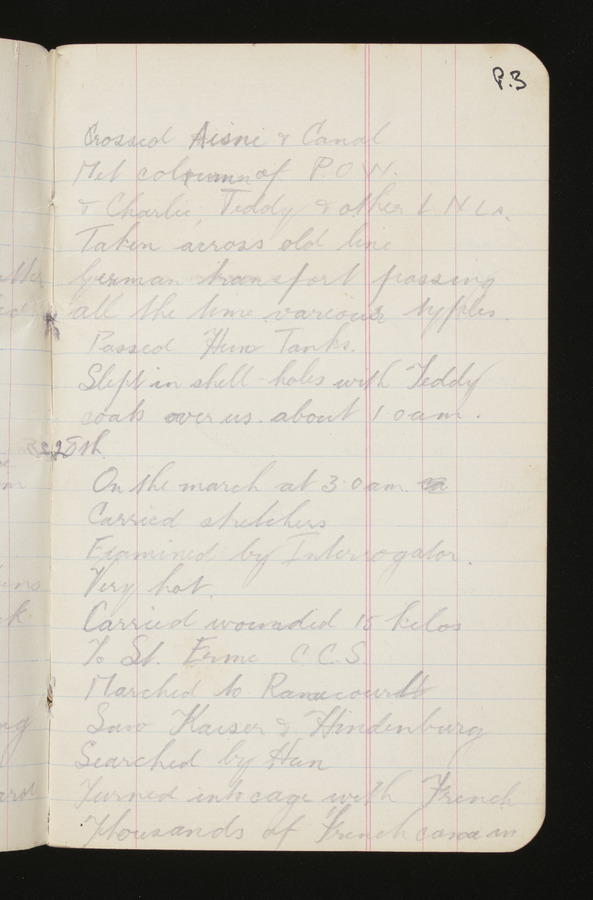 P.3
Crossed Aisne & Canal
Met column of P.O.W.
& Charlie, Teddy & other L N LS.
Taken across old line
German transport passing
all the time various typles.
Passed Hun Tanks.
Slept in shell-holes with Teddy
coats over us. about 1 0 am.
28th.
On the march at 3.0 am.
Carried stretchers
Examined by Interrogator.
Very hot.
Carried wounded 15 kelos
To St. Erme C.C.S.
Marched to Ramecourt
Saw Kaiser & Hindenburg
Searched by Hun
Turned into cage with French
Thousands of French came in